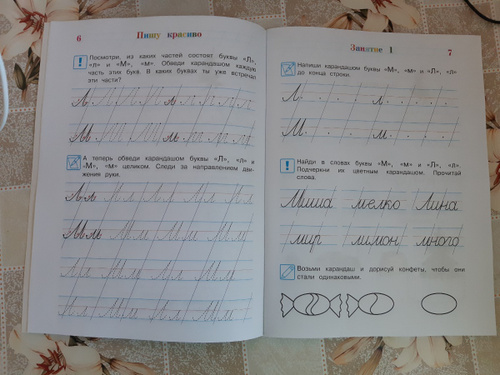 6 Пишу красиво
Посмотри, из каких частей состоят буквы «Л»,
«л» и «М», «м». Обведи карандашом каждую
часть этих букв. В каких буквах ты уже встречал
эти части?
Л л
М м
А теперь обведи карандашом буквы «Л», «л» и
«М», «м» целиком. Следи за направлением дви-
жения руки.
Л л Л л Л л Л л
М м М м М м М м
Л л М м Л л М м
Л л М м Л л М м
Занятие 1 7
Напиши карандашом буквы «М», «м» и «Л», «л»
до конца строки.
Л л
М м
Найди в словах буквы «М», «м» и «Л», «л».
Подчеркни их цветным карандашом. Прочитай
слова.
Миша мелко Лина
мир лимон много
Возьми карандаш и дорисуй конфеты, чтобы они
стали одинаковыми.